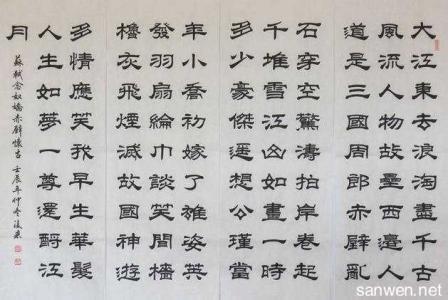 大江東去浪淘盡千古
風流人物故壘西邊人
道是三國周郎赤壁亂
石穿空驚濤拍岸卷起
千堆雪江山如畫一時
多少豪傑遙想公瑾當
年小喬初嫁了雄姿英
發羽扇綸巾談笑間檣
櫓灰飛煙滅故國神遊
多情應笑我早生華髮
人生如夢一尊還酹江
月
蘇軾念奴嬌赤壁懷古 壬辰年仲冬
sanwen.net